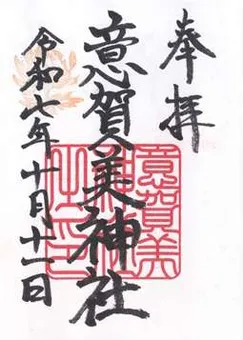 奉拝
意賀美神社
意賀美神社之印
令和七年十月十一日